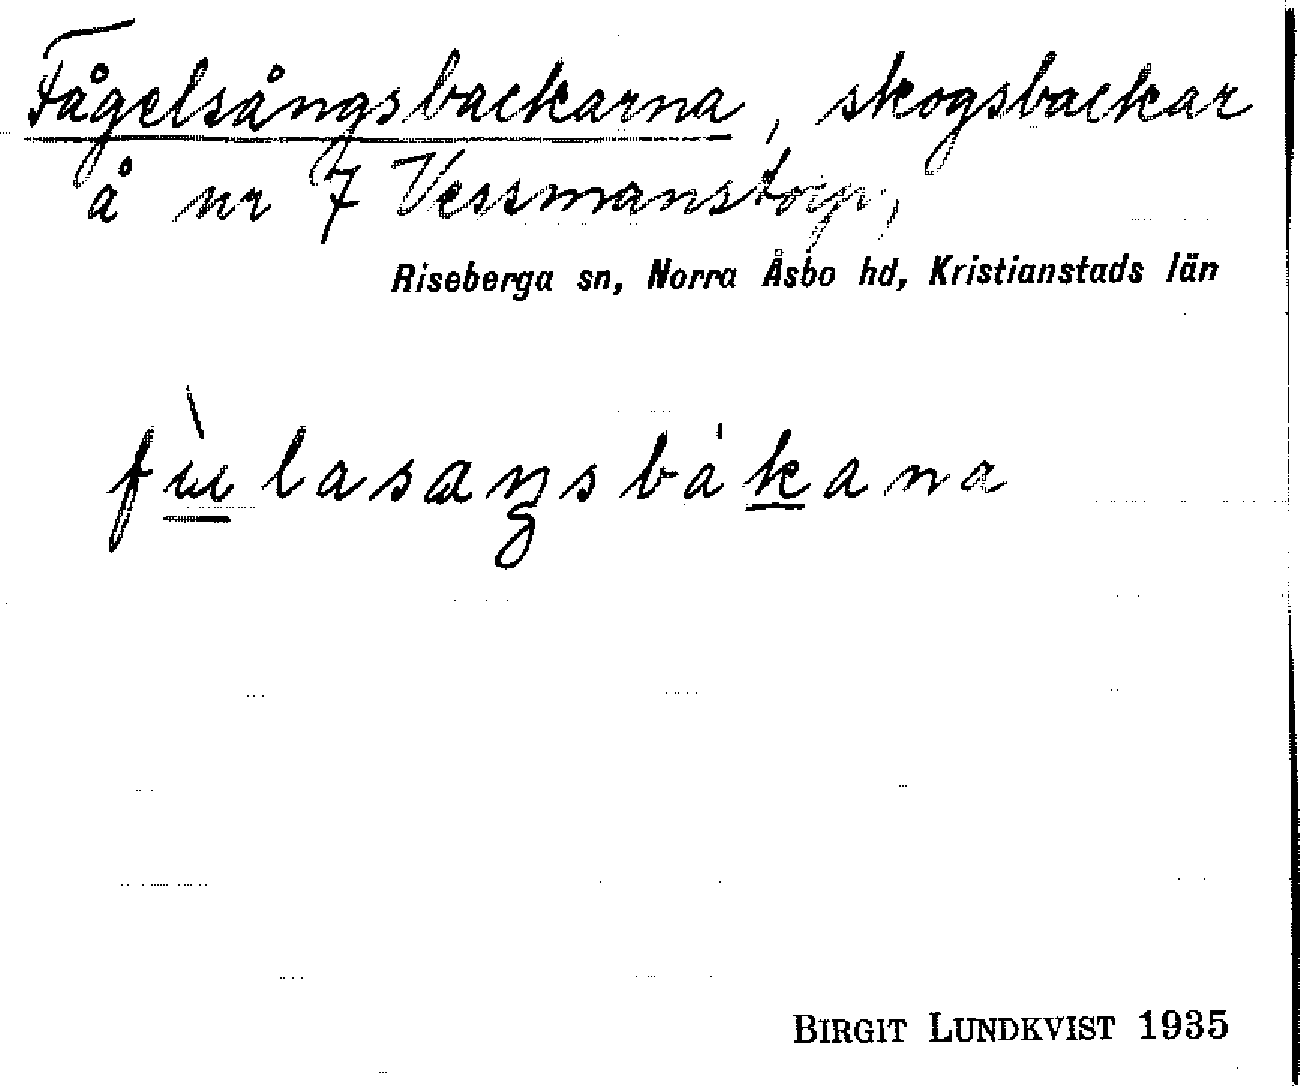 Fågelsångsbackarna, skogsbackar
å nr 7 Vessmanstorp,
Riseberga sn, Norra Åsbo hd, Kristianstads län
fùulasaŋsbákana
BIRGIT LUNDKVIST 1935